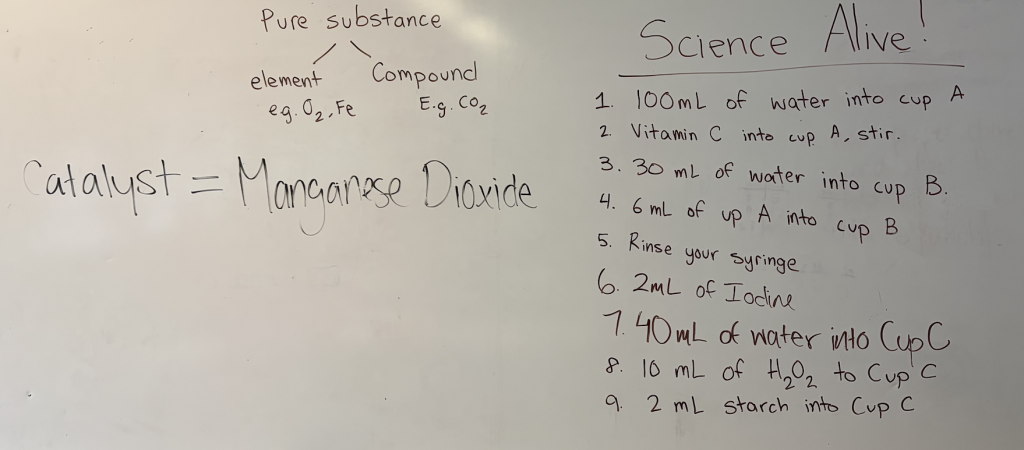 Pure substance
element Compound
e.g. O₂, Fe E.g. CO₂
Catalyst = Manganese Dioxide
Science Alive!
1. 100mL of water into cup A
2. Vitamin C into cup A, stir.
3. 30 mL of water into cup B.
4. 6 mL of up A into cup B
5. Rinse your syringe
6. 2mL of Iodine
7. 40mL of water into Cup C
8. 10 mL of H₂O₂ to Cup C
9. 2 mL starch into Cup C